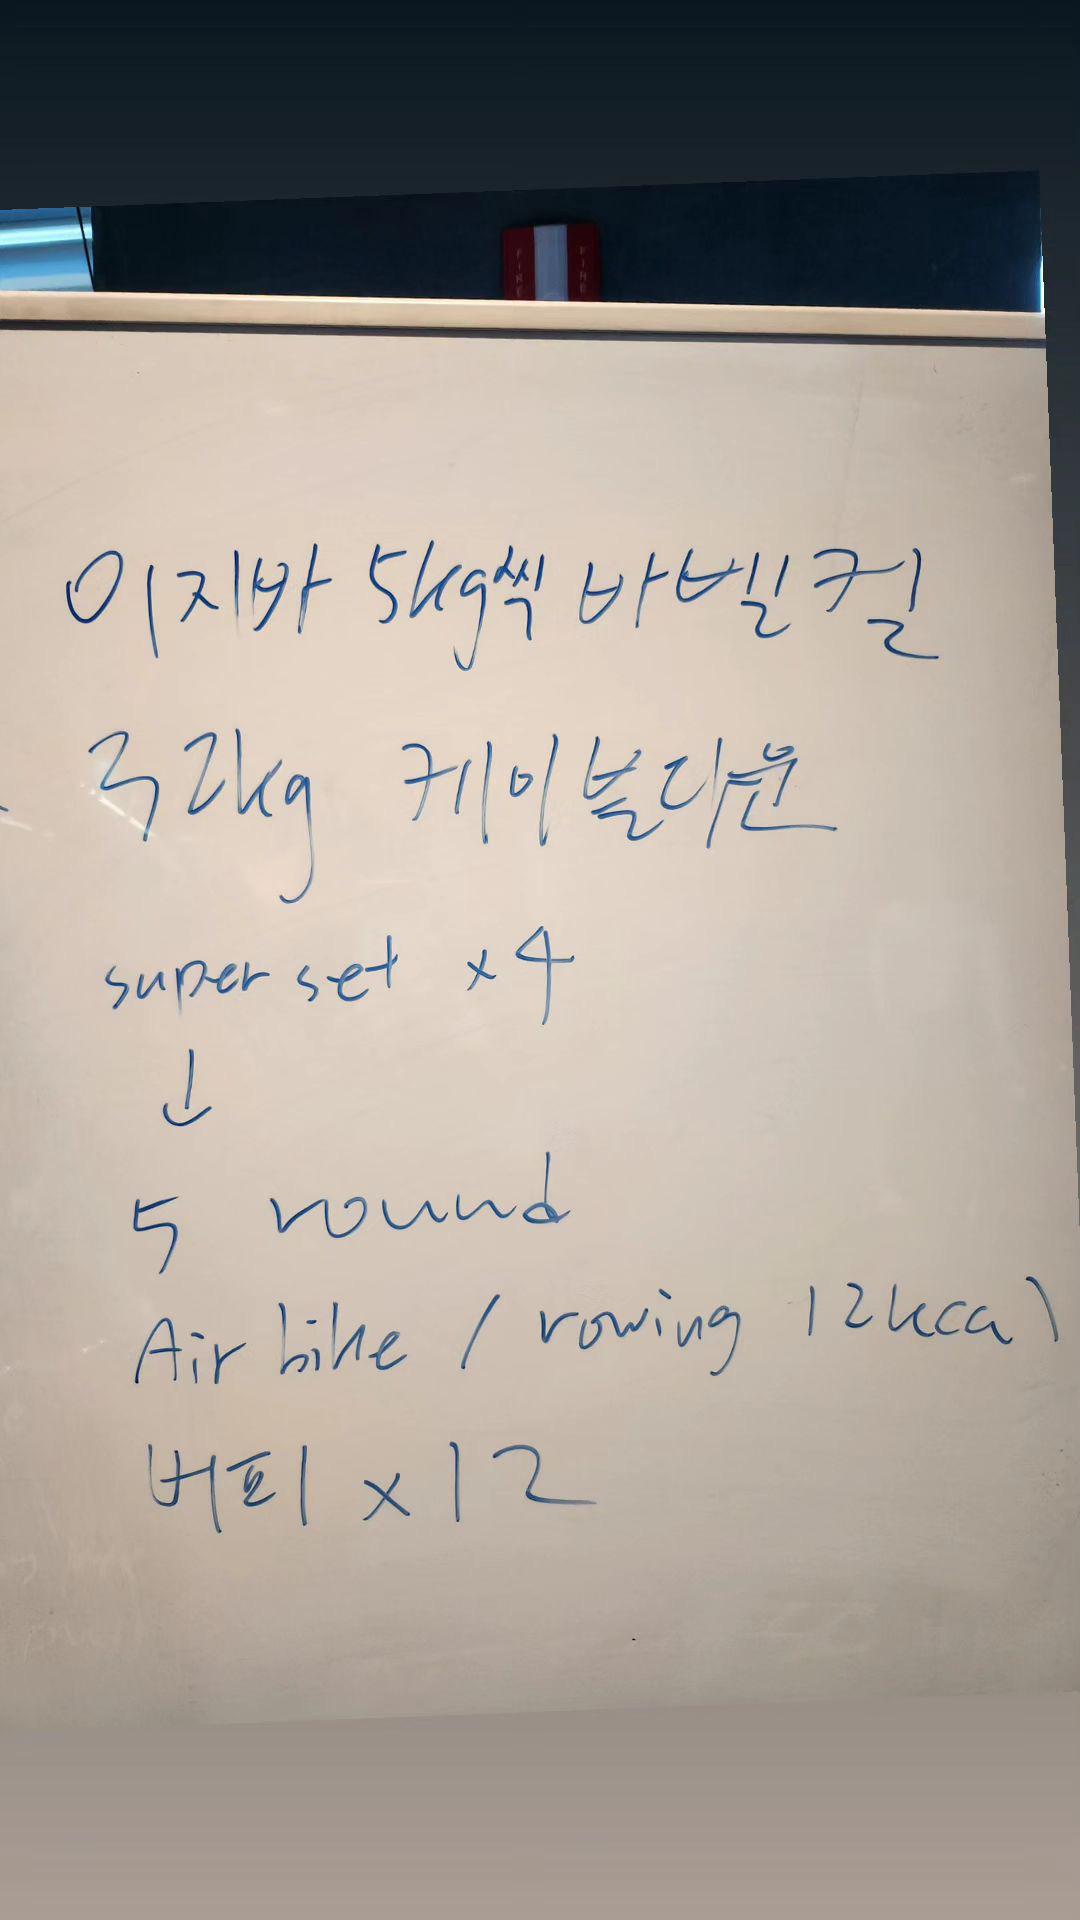 FIRE FIRE
이지바 5kg씩 바벨컬
32kg 케이블다운
super set x4
↓
5 round
Air bike / rowing 12kcal
버피 x12